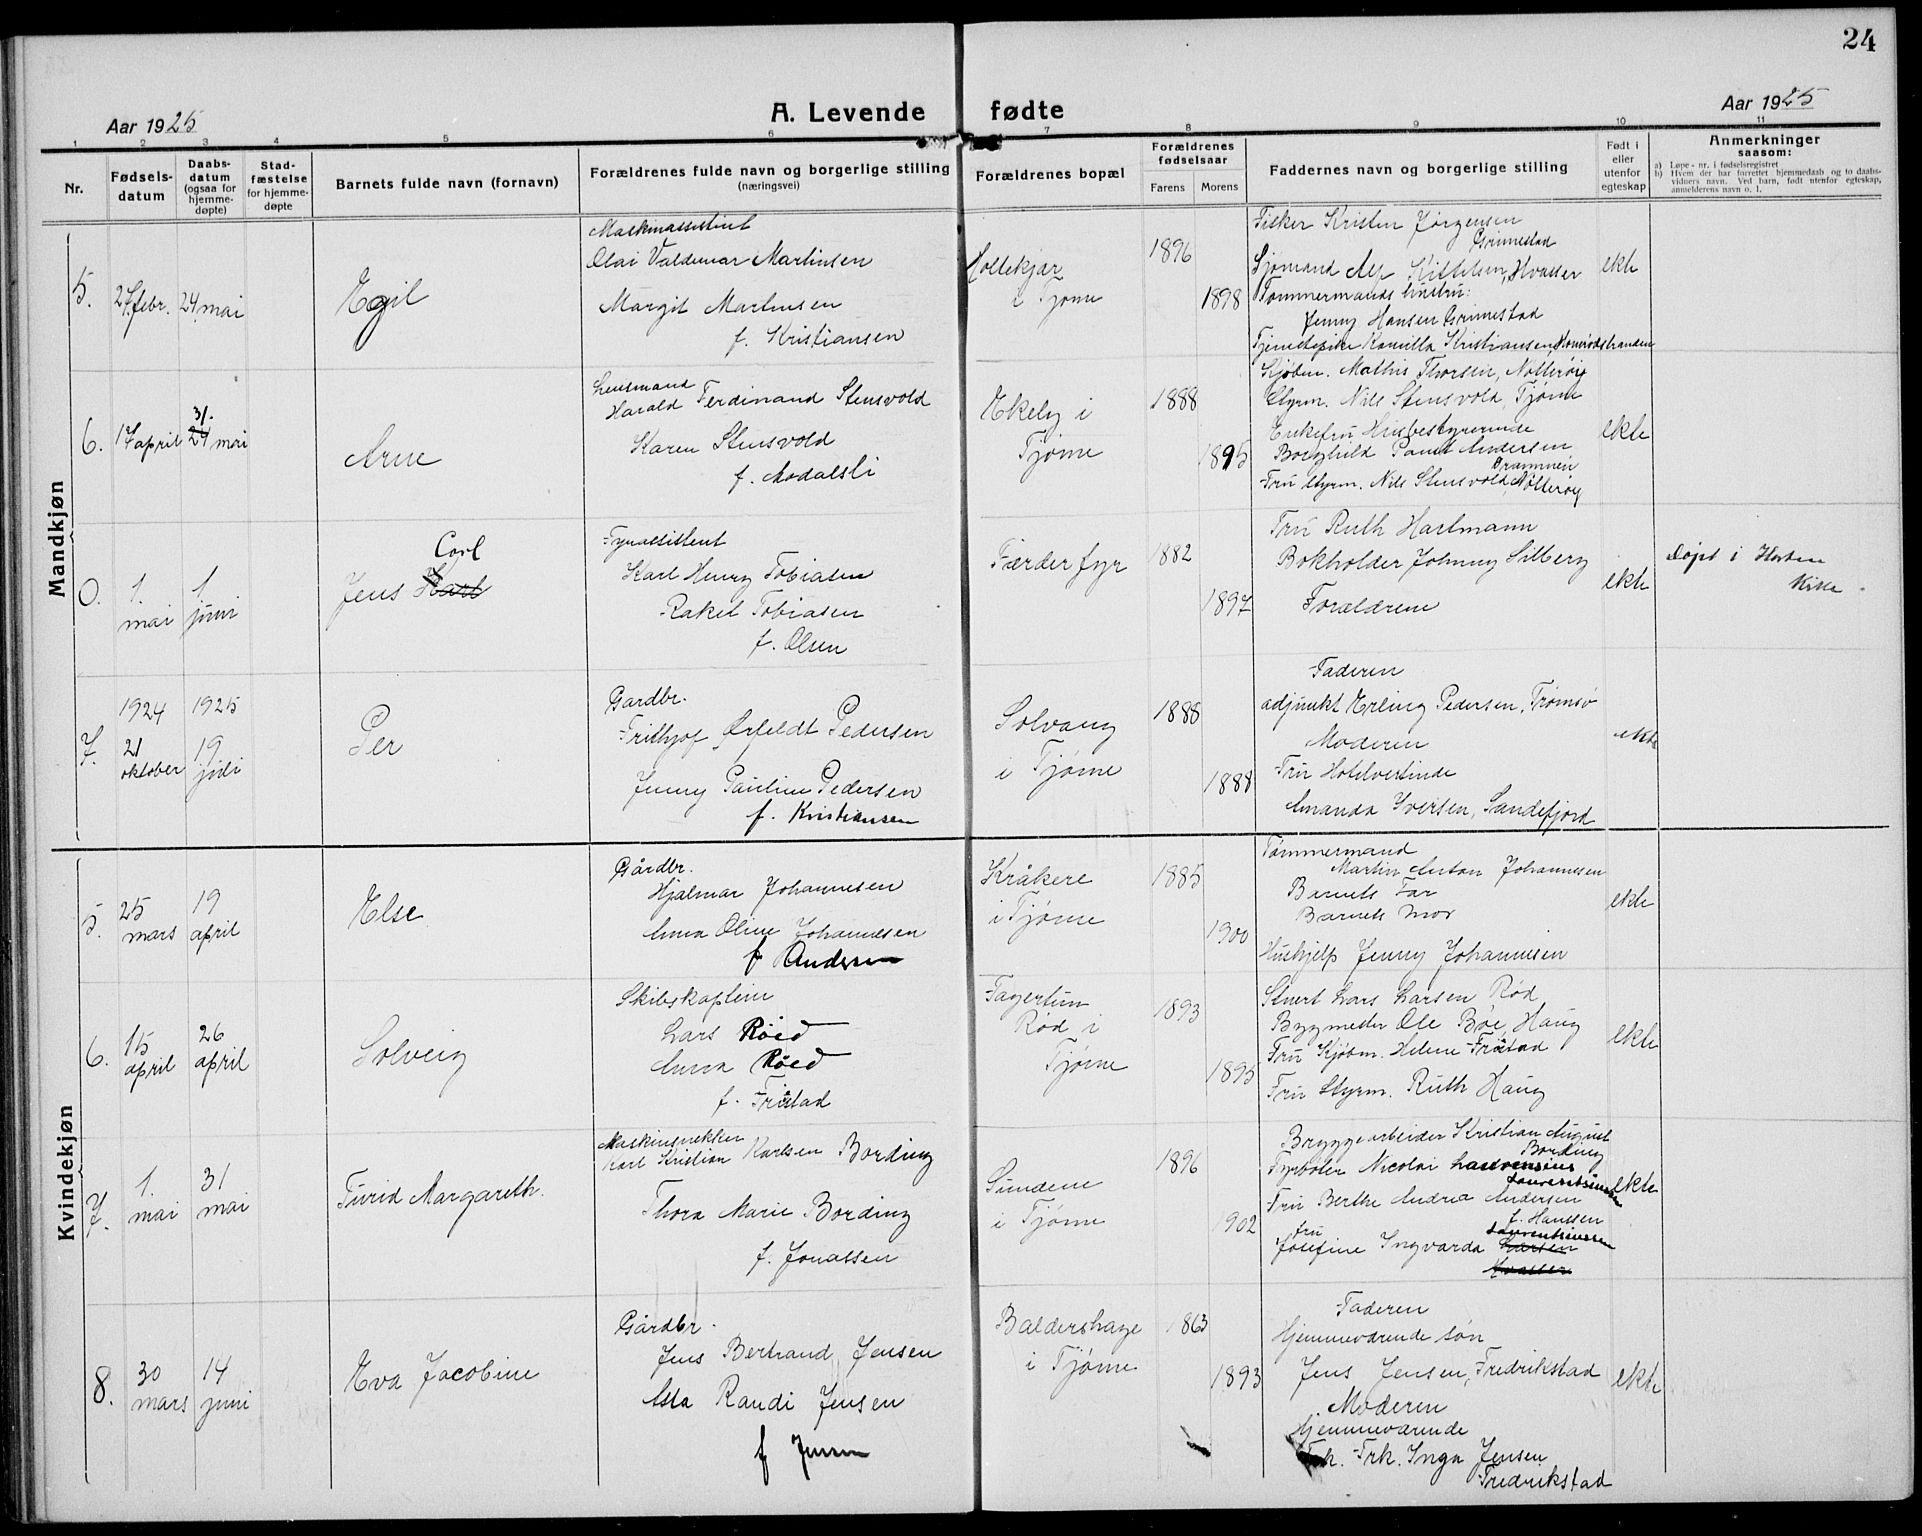 24
Aar 1925
A. Levende fødte
Aar 1925
1 2 3 4 5 6 7 8 9 10 11
Nr.
Fødsels-
datum
Daabs-
datum
(ogsaa for
hjemme-
døpte)
Stad-
fæstelse
for hjemme-
døpte
Barnets fulde navn (fornavn)
Forældrenes fulde navn og borgerlige stilling
(næringsvei)
Forældrenes bopæl
Forældrenes
fødselsaar
Farens
Morens
Faddernes navn og borgerlige stilling
Født i
eller
utenfor
egteskap
Anmerkninger
saasom:
a) Løpe-nr. i fødselsregistret
b) Hvem der har forrettet hjemmedaab og to daabs-
vidners navn. Ved barn, født utenfor egteskap,
anmelderens navn o. l.
Mandkjøn
5.
27. febr.
24. mai
Egil
Maskinassistent
Olai Valdemar Martinsen
Margit Martinsen
f. Kristiansen
Møllekjær
i Tjøme
1896
1898
Fisker Kristen Jørgensen
Grimestad
Sjømand Alf Kittelsen, Hvasser
Tømmermands hustru:
Jenny Hansen Grimestad
Tjenestepike Kamilla Kristiansen,
ekte
6.
17 april
31.
24 mai
Arne
Lensmand
Harald Ferdinand Stensvold
Karen Stensvold
f. Modalsli
Ekely i
Tjøme
1888
1895
Kjøbm. Mathis Thorsen, Nøtterøy
Styrm. Nils Stensvold, Tjøme
Enkefru Husbestyrerinde
Borghild Andersen
Drammen
Fru Styrm. Nils Stensvold, Nøtterøy
ekte
0.
1.
mai
1.
juni
Carl
Jens Karl
Fyrassistent
Karl Henry Tobiasen
Rakel Tobiasen
f. Olsen
Færder fyr
1882
1897
Fru Ruth Hartmann
Bokholder Johnny Silberg
Forældrene
ekte
Døpt i Horten
Kirke.
7.
1924
21
oktober
1925
19
juli
Per
Gardbr.
Frithjof Ørfeldt Pedersen
Jenny Pauline Pedersen
f. Kristiansen
Solvang
i Tjøme
1888
1888
Faderen
adjunkt Erling Pedersen, Tromsø
Moderen
Fru Hotelvertinde
Amanda Iversen, Sandefjord
ekte
Kvindekjøn
5.
25
mars
19
april
Else
Gårdbr.
Hjalmar Johannesen
Anna Oline Johannesen
f. Andersen
Kråkere
i Tjøme
1885
1900
Tømmermand
Martin Anton Johannesen
Barnets Far
Barnets Mor
Hushjelp Jenny Johannesen
ekte
6.
15
april
26
april
Solveig
Skibskaptein
Lars Röed
Anna Röed
f. Fristad
Fagertun
Rød i
Tjøme
1893
1895
Stuert Lars Larsen Rød
Bygmester Ole Bøe, Haug
Fru Kjøbm. Helene Fristad
Fru Styrm. Ruth Haug
ekte
7.
1.
mai
31
mai
Turid Margareth.
Maskinsnekker
Karl Kristian Karlsen Bording
Thora Marie Bording
f. Jonassen
Sundene
i Tjøme
1896
1902
Bryggearbeider Kristian August
Bording
Fyrbøter Nicolai
Fru Berthe Andrea Andersen
f. Hanssen
fru
Josefine Ingvarda Larsen
Hvasser
ekte
8.
30
mars
14
juni
Eva Jacobine
Gårdbr.
Jens Bertrand Jensen
Asta Randi Jensen
f Jensen
Baldershage
i Tjøme
1863
1893
Faderen
Hjemmeværende søn
Jens Jensen, Fredrikstad
Moderen
Hjemmeværende
Frk. Inga Jensen
Fredrikstad
ekte